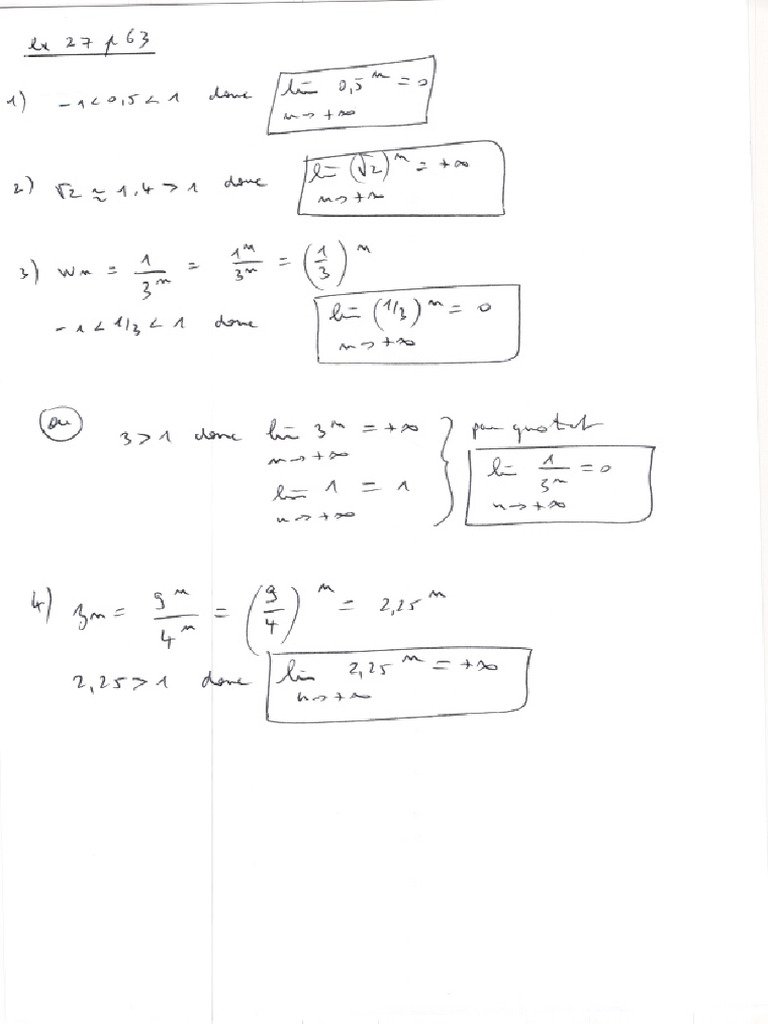 ex 27 p 63
1) -1 < 0,5 < 1 donc lim 0,5^n = 0
n → +∞
2) √2 ≈ 1,4 > 1 donc lim (√2)^n = +∞
n → +∞
3) wn = 1/3^n = 1^n/3^n = (1/3)^n
-1 < 1/3 < 1 donc lim (1/3)^n = 0
n → +∞
ou
3 > 1 donc lim 3^n = +∞ } par quotient
n → +∞
lim 1 = 1
n → +∞
lim 1/3^n = 0
n → +∞
4) zn = 9^n/4^n = (9/4)^n = 2,25^n
2,25 > 1 donc lim 2,25^n = +∞
n → +∞